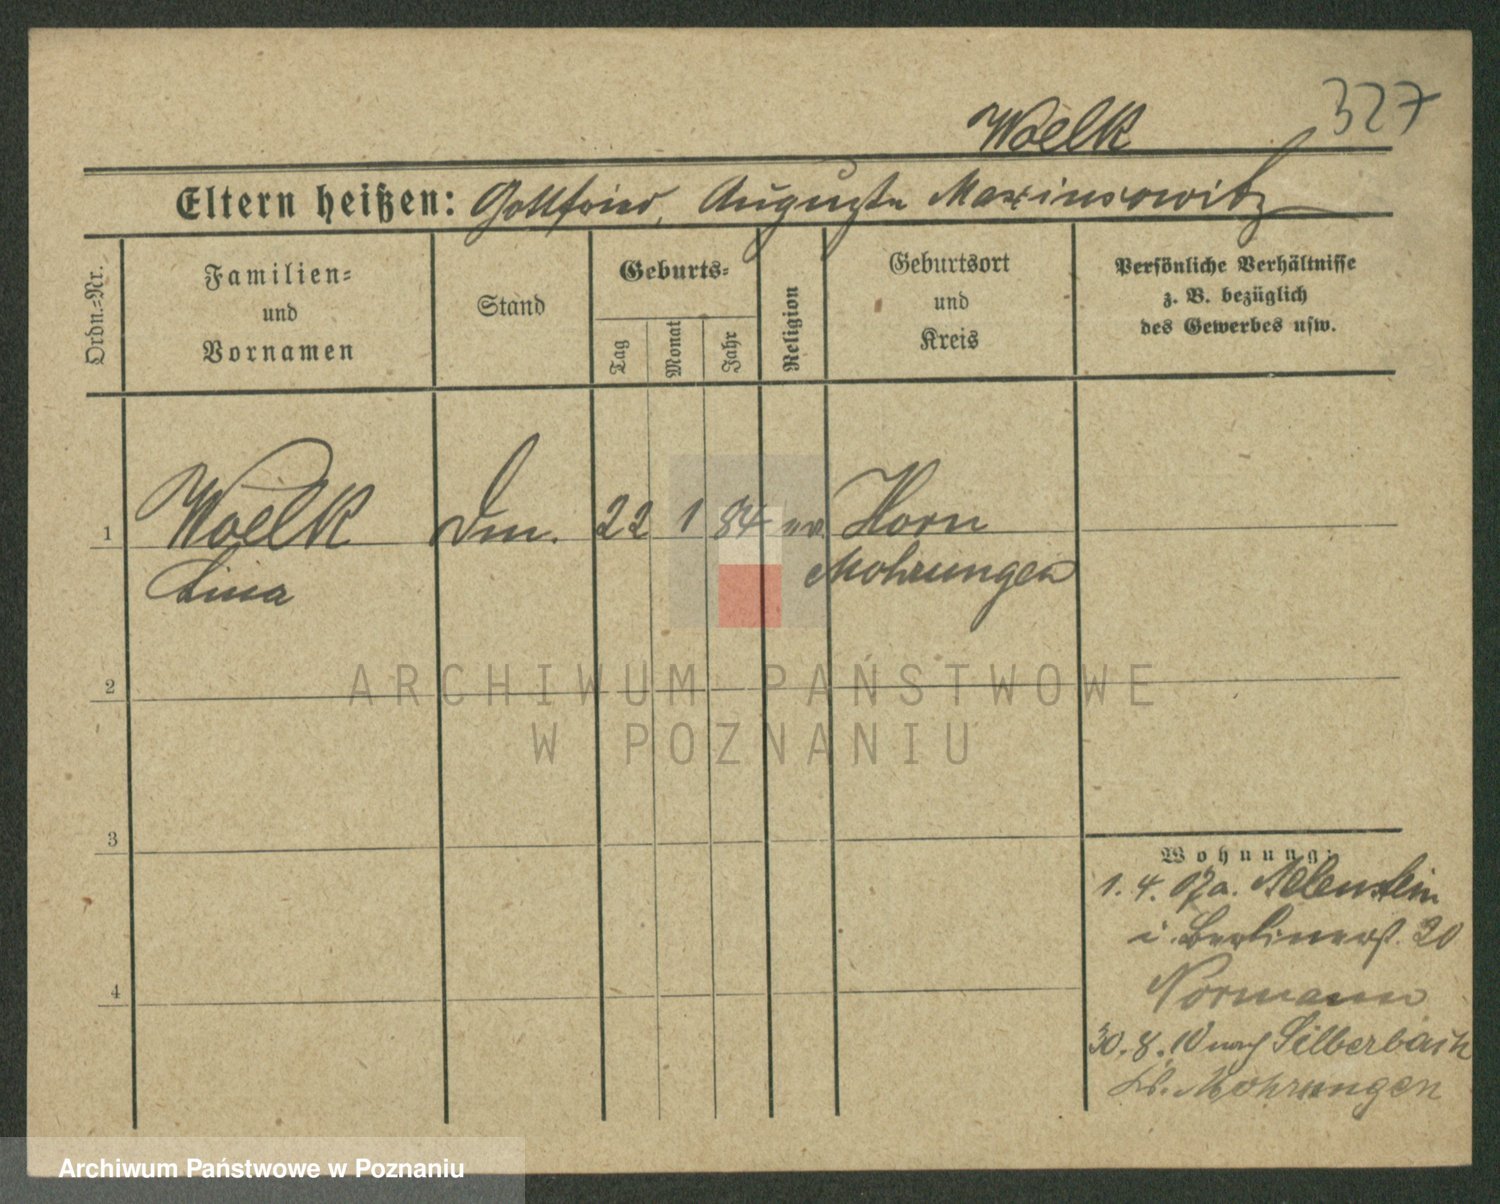 327
Woelk
Eltern heißen: Gottfried, Auguste
Ordn.-Nr.
Familien-
und
Vornamen
Stand
Geburts-
Tag
Monat
Jahr
Religion
Geburtsort
und
Kreis
Persönliche Verhältnisse
z. B. bezüglich
des Gewerbes usw.
1 Woelk 22 1 84 ev Horn
Lina Mohrungen
2
3
4
Wohnung:
1. 4. 07 a. Allenstein
i. Berlinerst. 20
Normann
30. 8. 10 nach Silberbach
Kr. Mohrungen
ARCHIWUM PAŃSTWOWE
W POZNANIU
Archiwum Państwowe w Poznaniu